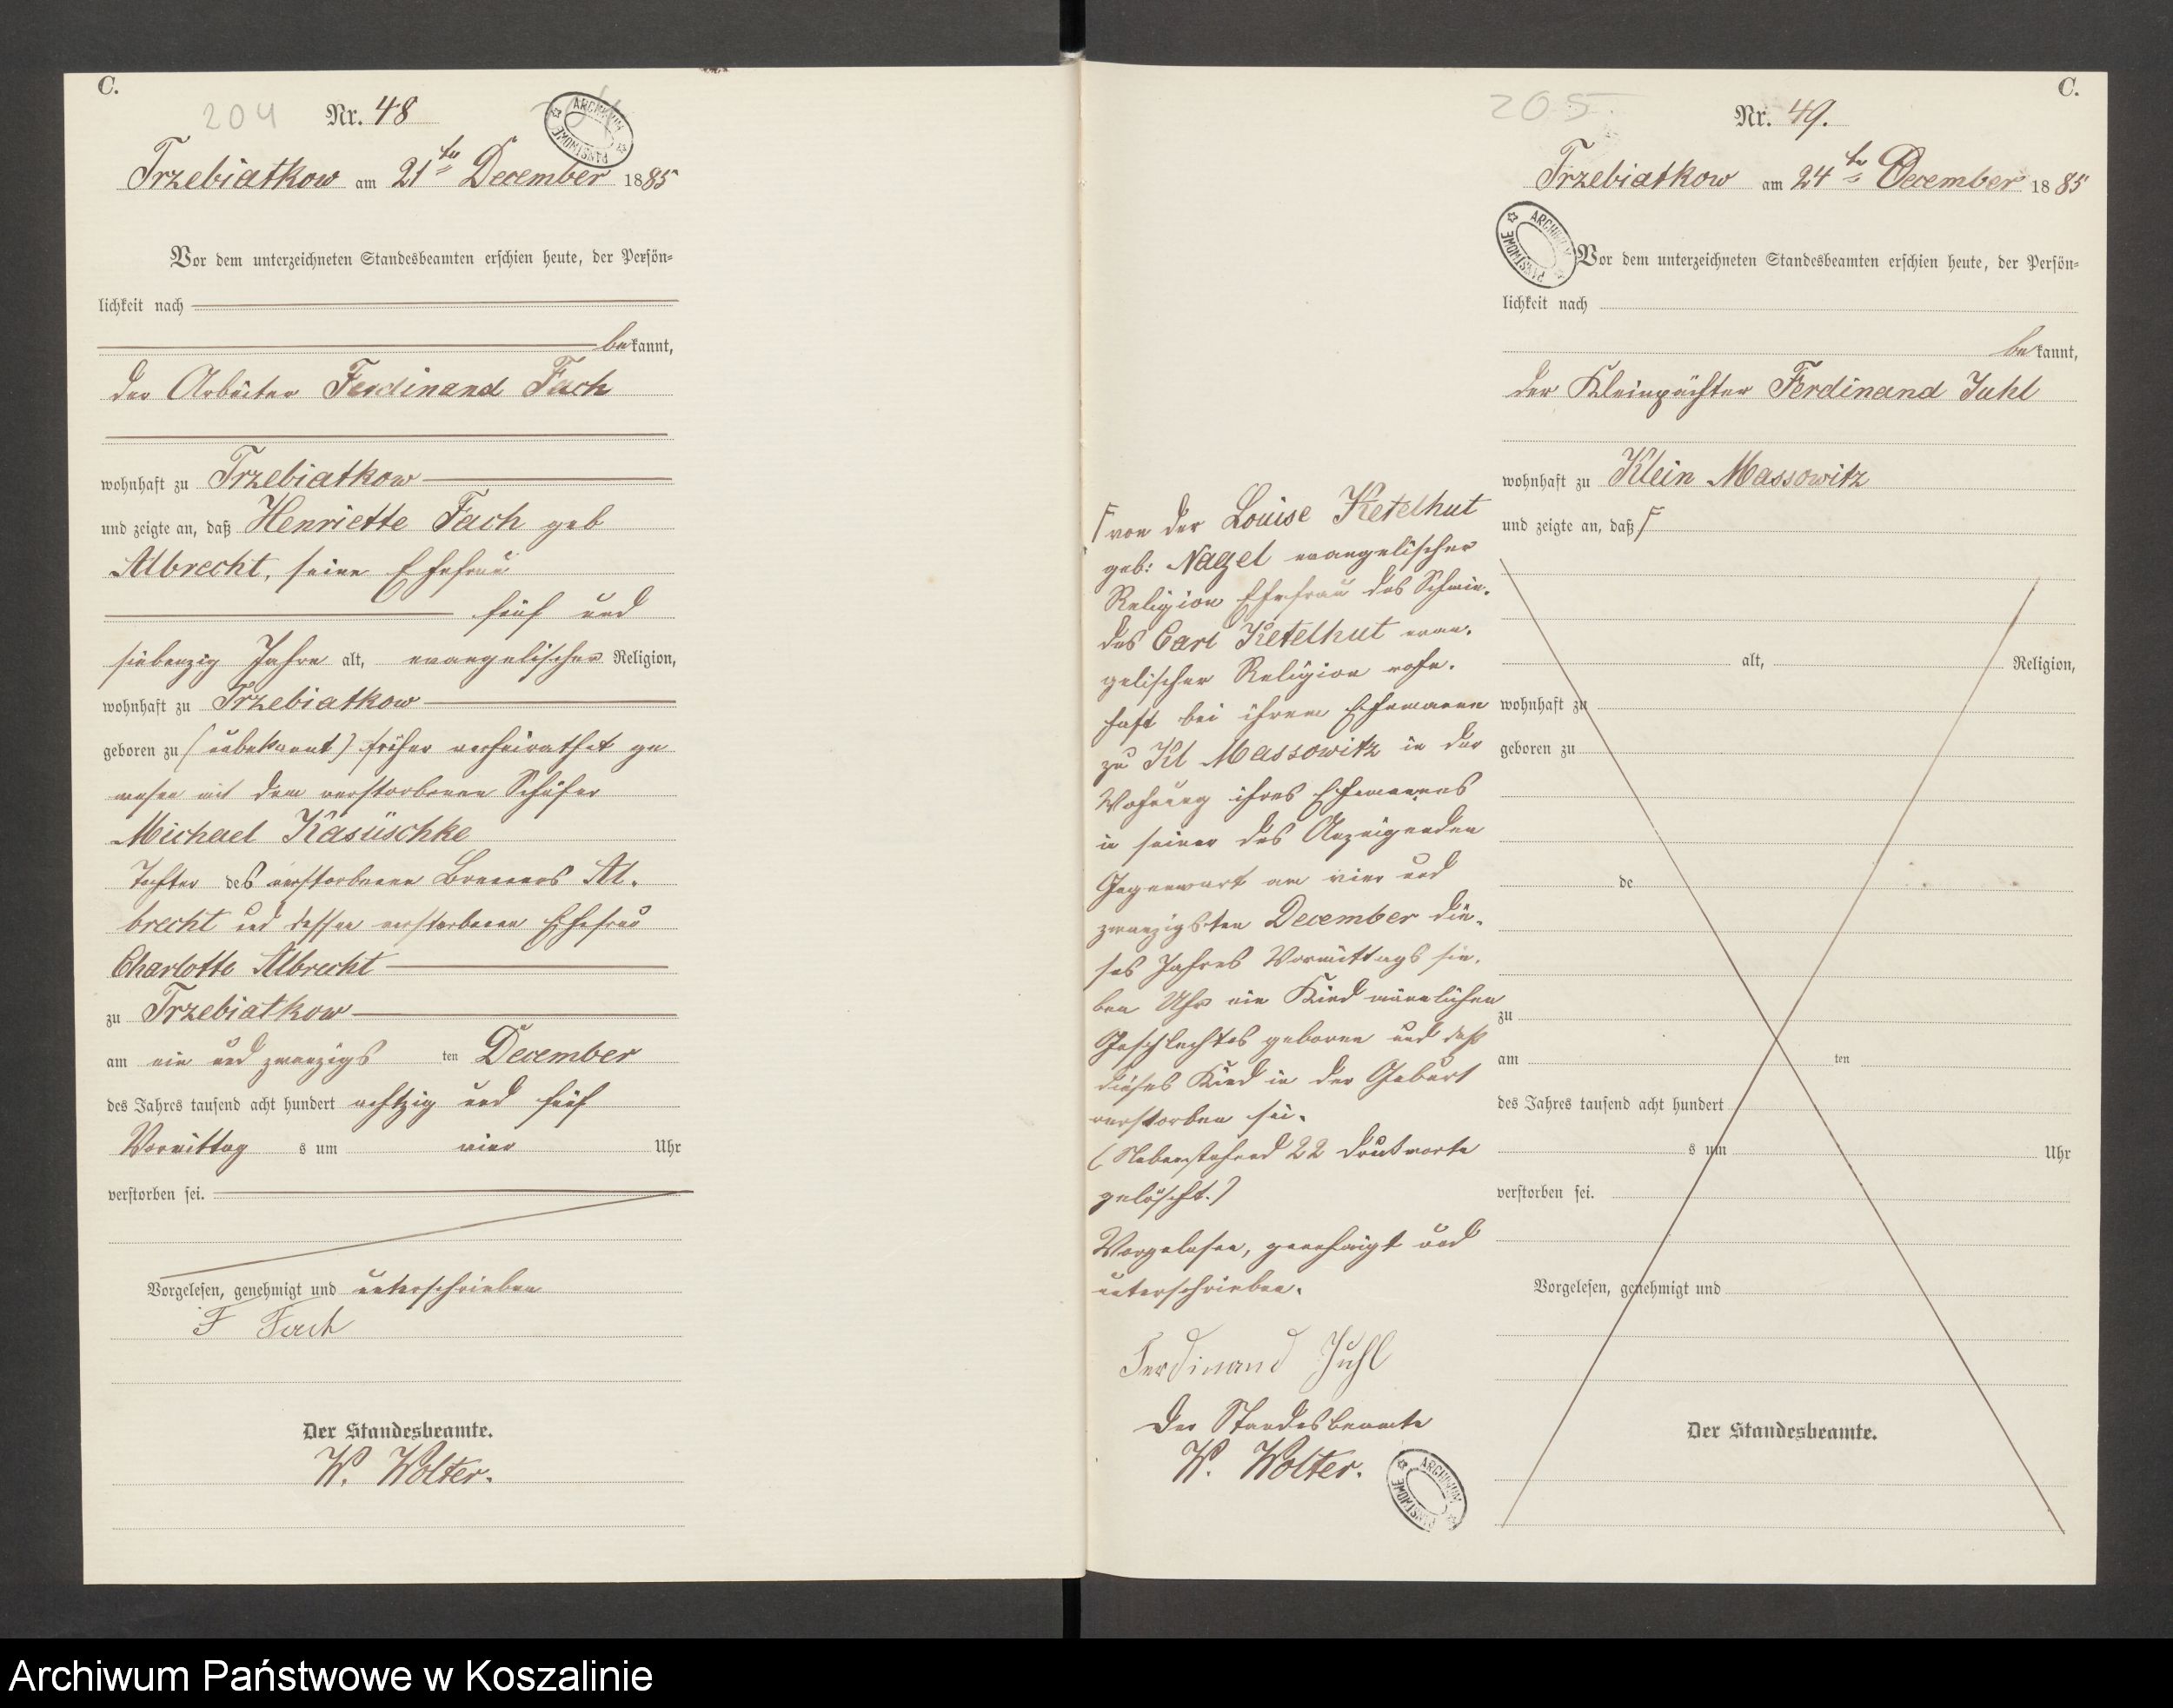 C.
204
Nr. 48
ARCHIWUM PAŃSTWOWE
Trzebiatkow am 21ten December 1885
Vor dem unterzeichneten Standesbeamten erschien heute, der Persön-
lichkeit nach
bekannt,
der Arbeiter Ferdinand Fach
wohnhaft zu Trzebiatkow
und zeigte an, daß Henriette Fach geb
Albrecht, seine Ehefrau
fünf und
siebenzig Jahre alt, evangelischer Religion,
wohnhaft zu Trzebiatkow
geboren zu (unbekannt) früher verheirathet ge
wesen mit dem verstorbenen Schäfer
Michael Kasüschke
Tochter des verstorbenen Al-
brecht und dessen verstorbenen Ehefrau
Charlotte Albrecht
zu Trzebiatkow
am ein und zwanzigs ten December
des Jahres tausend acht hundert achtzig und fünf
Vormittag s um vier Uhr
verstorben sei.
Vorgelesen, genehmigt und unterschrieben
F Fach
Der Standesbeamte.
W. Wolter.
C.
205
Nr. 49.
Trzebiatkow am 24ten December 1885
ARCHIWUM PAŃSTWOWE
Vor dem unterzeichneten Standesbeamten erschien heute, der Persön-
lichkeit nach
bekannt,
der Kleinpächter Ferdinand Juhl
wohnhaft zu Klein Massowitz
und zeigte an, daß
von der Louise Ketelhut
geb: Nagel evangelischer
Religion Ehefrau des Schmie-
des Carl Ketelhut evan-
gelischer Religion wohn-
haft bei ihrem Ehemanne
zu Kl Massowitz in der
Wohnung ihres Ehemannes
in seiner des Anzeigenden
Gegenwart am vier und
zwanzigsten December die-
ses Jahres Vormittags sie-
ben Uhr ein Kind männlichen
Geschlechtes geboren und daß
dieses Kind in der Geburt
verstorben sei.
(Nebenstehend 22 Druckworte
gelöscht.)
Vorgelesen, genehmigt und
unterschrieben.
Ferdinand Juhl
Der Standesbeamte
W. Wolter.
ARCHIWUM PAŃSTWOWE
alt, Religion,
wohnhaft zu
geboren zu
de
zu
am ten
des Jahres tausend acht hundert
s um Uhr
verstorben sei.
Vorgelesen, genehmigt und
Der Standesbeamte.
Archiwum Państwowe w Koszalinie